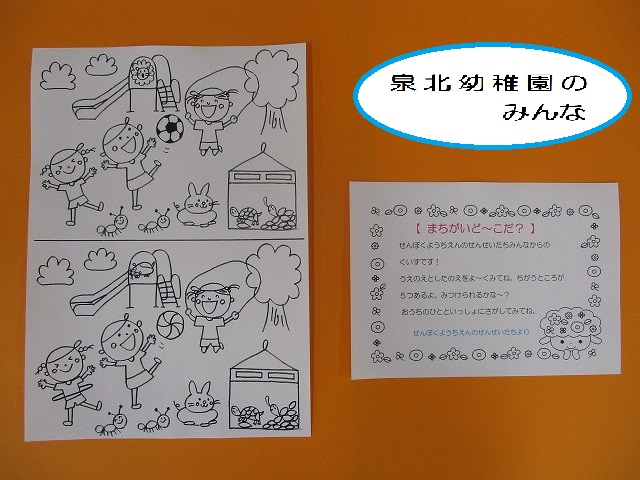 泉北幼稚園の
みんな
【 まちがいど～こだ？ 】
せんぼくようちえんのせんせいたちみんなからの
くいずです！
うえのえとしたのえをよ～くみてね。ちがうところが
５つあるよ。みつけられるかな～？
おうちのひとといっしょにさがしてみてね。
せんぼくようちえんのせんせいたちより